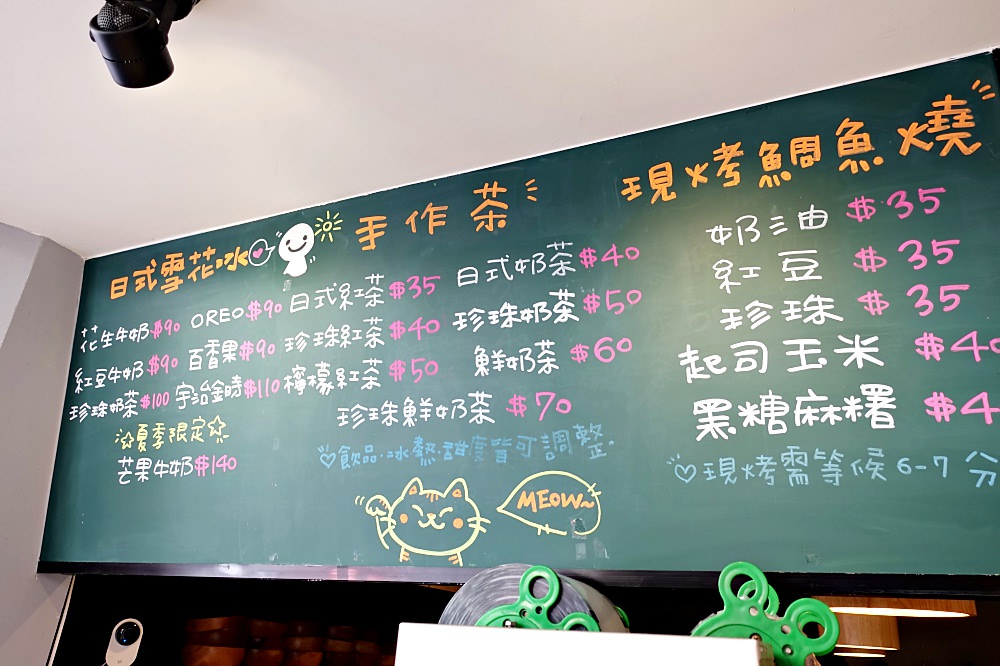 日式雪花冰
花生牛奶$90 OREO$90
紅豆牛奶$90 百香果$90
珍珠奶茶$100 宇治金時$110
夏季限定
芒果牛奶$140
手作茶
日式紅茶$35 日式奶茶$40
珍珠紅茶$40 珍珠奶茶$50
檸檬紅茶$50 鮮奶茶$60
珍珠鮮奶茶$70
飲品.冰熱.甜度皆可調整.
MEOW~
現烤鯛魚燒
奶油 $35
紅豆 $35
珍珠 $35
起司玉米 $40
黑糖麻糬 $4
現烤需等候6-7分